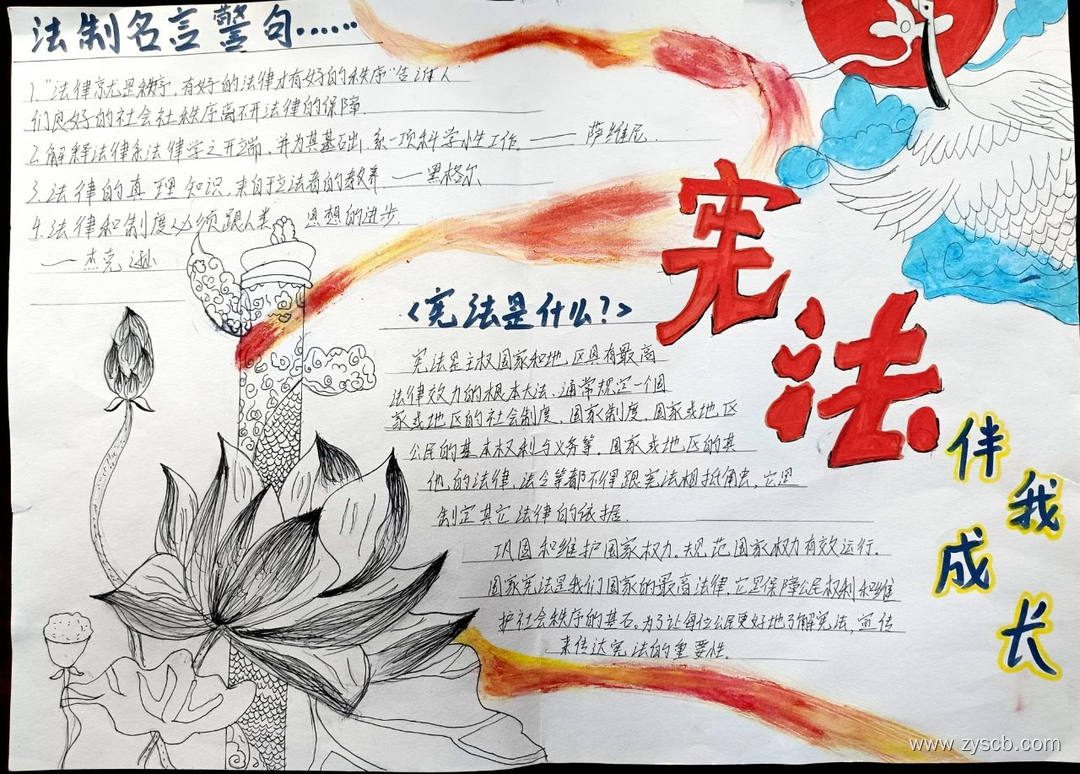 法制名言警句……
1."法律就是秩序,有好的法律才有好的秩序"
们良好的社会社秩序离不开法律的保障.
2.解释法律系法律学之开端,并为其基础,系一项科学性工作. ——萨维尼.
3.法律的真理知识,来自于立法者的教养.——黑格尔
4.法律和制度人必须跟人类思想的进步
——杰克逊
宪法
伴我成长
<宪法是什么?>
宪法是主权国家和地区具有最高
法律效力的根本大法、通常规定一个国
家或地区的社会制度、国家制度、国家或地区
公民的基本权利与义务等,国家或地区的其
他的法律,法令等都不得跟宪法相抵触,它是
制定其它法律的依据.
巩固和维护国家权力.规范国家权力有效运行.
国家宪法是我们国家的最高法律,它是保障公民权利和维
护社会秩序的基石.为了让每位公民更好地了解宪法,宣传
来传达宪法的重要性.
www.zyscb.com